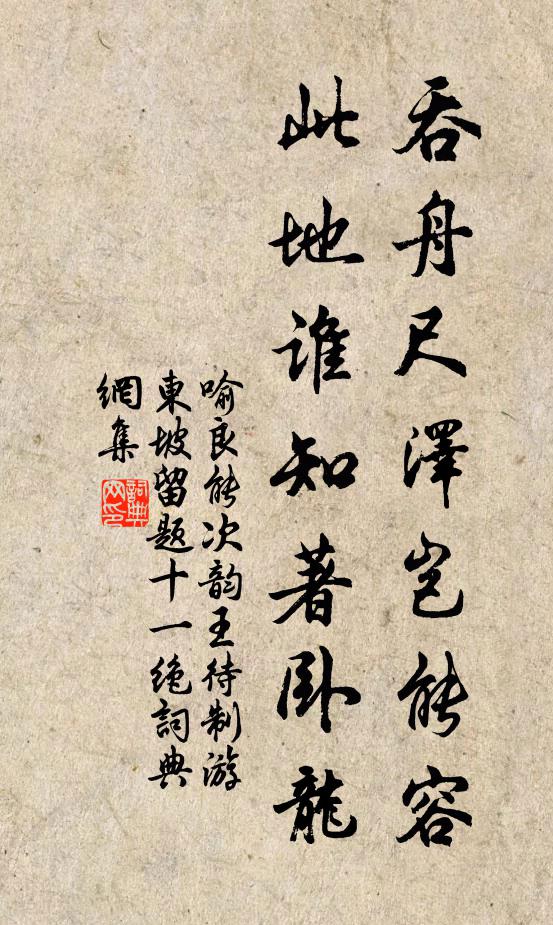 吞舟尺澤豈能容
此地誰知著臥龍
喻良能次韵王待制游
東坡留題十一絶詞典
網集
詞典
网印